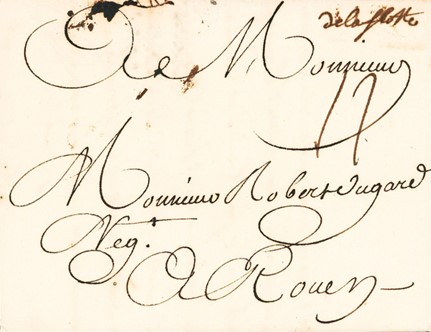 de la flotte
A Monsieur
11
Monsieur Robert Dugard
Neg.t
A Rouen